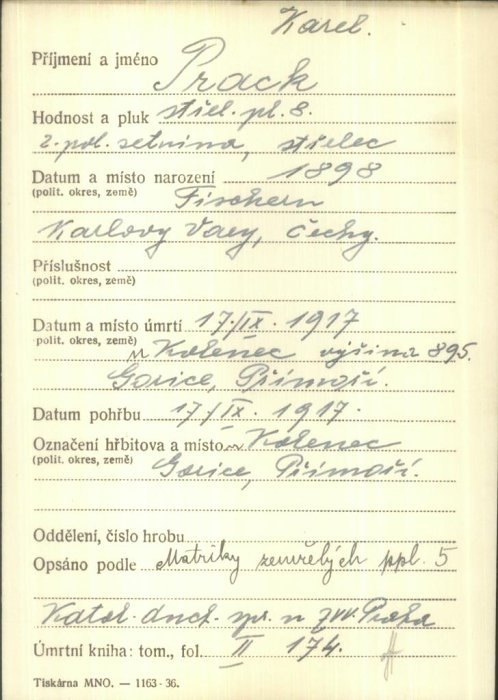 Karel.
Příjmení a jméno Prack
Hodnost a pluk střel. pl. 8.
2. pol. setnina, střelec
Datum a místo narození 1898
(polit. okres, země) Fischern
Karlovy Vary, Čechy.
Příslušnost
(polit. okres, země)
Datum a místo úmrtí 17./IX. 1917
(polit. okres, země) u Kolenec výšina 895.
Gorice, Přímoří.
Datum pohřbu 17/IX. 1917.
Označení hřbitova a místo u Kolenec
(polit. okres, země) Gorice, Přímoří.
Oddělení, číslo hrobu
Opsáno podle Matriky zemřelých ppl. 5
Katol. duch. spr. u zvv. Praha
Úmrtní kniha: tom., fol. II 174.
Tiskárna MNO. — 1163-36.